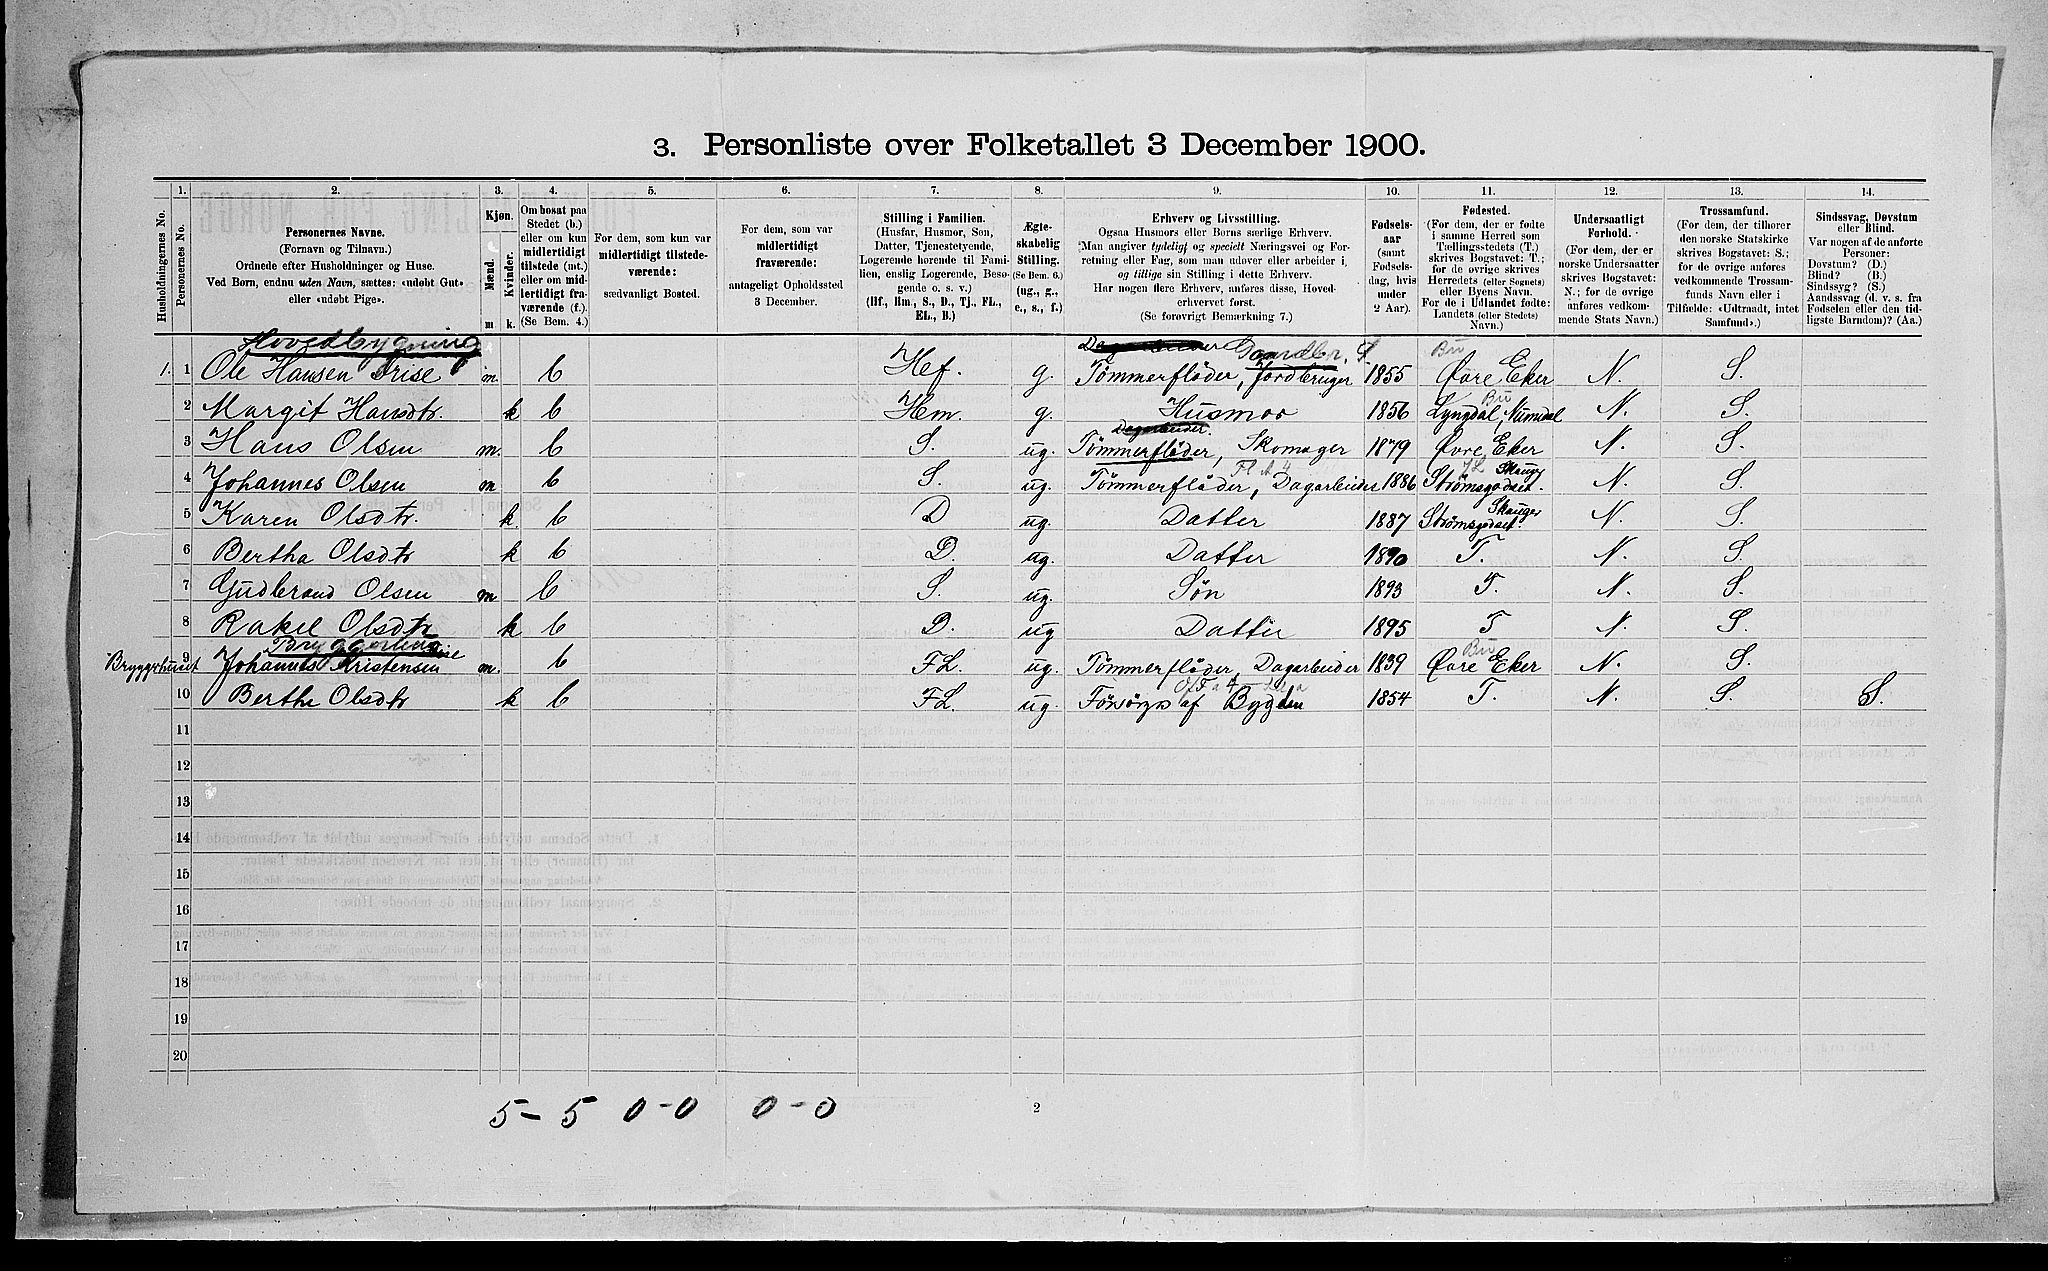 3. Personliste over Folketallet 3 December 1900.
Husholdningernes No.
1.
Personernes No.
2.
Personernes Navne.
(Fornavn og Tilnavn.)
Ordnede efter Husholdninger og Huse.
Ved Børn, endnu uden Navn, sættes: «udøbt Gut»
eller «udøbt Pige».
3.
Kjøn.
Mænd. Kvinder.
m k.
4.
Om bosat paa
Stedet (b.)
eller om kun
midlertidigt
tilstede (mt.)
eller om mid-
lertidigt fra-
værende (f.).
(Se Bem. 4.)
5.
For dem, som kun var
midlertidigt tilstede-
værende:
sædvanligt Bosted.
6.
For dem, som var
midlertidigt
fraværende:
antageligt Opholdssted
3 December.
7.
Stilling i Familien.
(Husfar, Husmor, Søn,
Datter, Tjenestetyende,
Logerende hørende til Fami-
lien, enslig Logerende, Besø-
gende o. s. v.)
(Hf., Hm., S., D., Tj., FL.,
EL., B.)
8.
Ægte-
skabelig
Stilling.
(Se Bem. 6.)
(ug., g.,
e., s., f.)
9.
Erhverv og Livsstilling.
Ogsaa Husmors eller Børns særlige Erhverv.
Man angiver tydeligt og specielt Næringsvei og For-
retning eller Fag, som man udøver eller arbeider i,
og tillige sin Stilling i dette Erhverv.
Har nogen flere Erhverv, anføres disse, Hoved-
erhvervet først.
(Se forøvrigt Bemærkning 7.)
10.
Fødsels-
aar
(samt
Fødsels-
dag, hvis
under
2 Aar).
11.
Fødested.
(For dem, der er fødte
i samme Herred som
Tællingsstedets (T.)
skrives Bogstavet: T.;
for de øvrige skrives
Herredets (eller Sognets)
eller Byens Navn.
For de i Udlandet fødte:
Landets (eller Stedets)
Navn.)
12.
Undersaatligt
Forhold.
(For dem, der er
norske Undersaatter
skrives Bogstavet:
N.; for de øvrige
anføres vedkom-
mende Stats Navn.)
13.
Trossamfund.
(For dem, der tilhører
den norske Statskirke
skrives Bogstavet: S.;
for de øvrige anføres
vedkommende Trossam-
funds Navn eller i
Tilfælde: «Udtraadt, intet
Samfund».)
14.
Sindssvag, Døvstum
eller Blind.
Var nogen af de anførte
Personer:
Døvstum? (D.)
Blind? (B.)
Sindssyg? (S.)
Aandssvag (d. v. s. fra
Fødselen eller den tid-
ligste Barndom)? (Aa.)
Hovedbygning Dagarbeider Gaardbr. S Bu
1. 1 Ole Hansen m. b Hef. g. Tømmerfløder, Jordbruger 1855 Øvre Eker N. S.
Bu
2 Margit Hansdtr. k b Hem. g. Husmor 1856 Lyngdal, Numedal N. S.
Dagarbeider.
3 Hans Olsen m. b S. ug. Tømmerfløder, Skomager 1879 Øvre Eker N. S.
Skauger
4 Johannes Olsen m b S. ug. Tømmerfløder, Dagarbeider 1886 Strømsgodset. N. S.
Skauger
5 Karen Olsdtr. k b D ug. Datter 1887 Strømsgodset. N. S.
6 Bertha Olsdtr k b D. ug. Datter 1890 T. N. S.
7 Gudbrand Olsen m b S. ug. Søn 1893 T. N. S.
8 Rakel Olsdtr k b D. ug Datter 1895 T N. S.
Bryggerhuset Bu
Bryggerhuset 9 Johannes Kristensen m. b FL. ug. Tømmerfløder, Dagarbeider 1839 Øvre Eker N. S.
10 Berthe Olsdtr k b FL. ug. Forsørges af Bygden 1854 T. N. S. S.
11
12
13
14
15
16
17
18
19
20
5 - 5 0 - 0 0 - 0
2